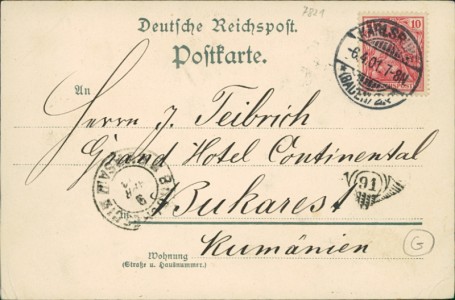 7801
Deutsche Reichspost.
Postkarte.
10
KARLSRUHE
-6.4.01.7-8N.
*(BADEN)2.*
An
Herrn J. Teibrich
Grand Hotel Continental
91
Bukarest
Rumänien
Wohnung
(Straße u. Hausnummer.)
G